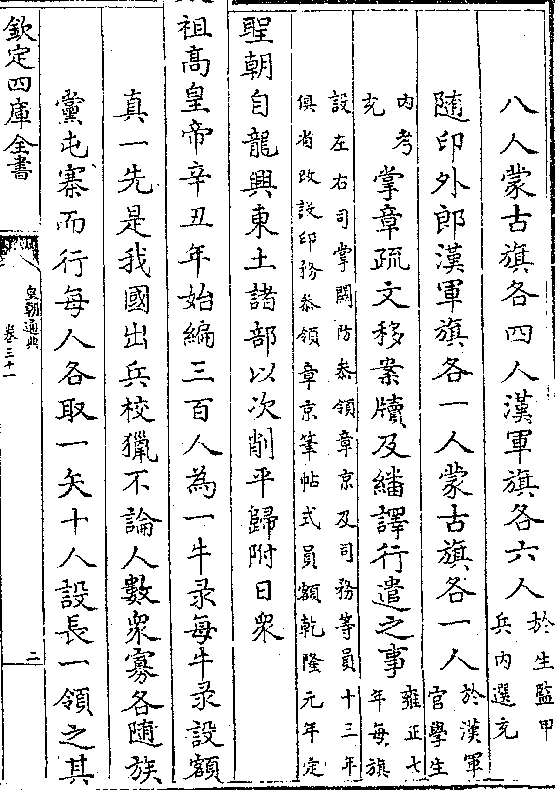 八人蒙古旗各四人漢軍旗各六人於生監甲兵內選充
隨印外郎漢軍旗各一人蒙古旗各一人於漢軍官學生
內考充掌章疏文移案牘及繙譯行遣之事雍正七年每旗
設左右司掌關防叅領章京及司務等員十三年
俱省改設印務叅領章京筆帖式員額乾隆元年定
聖朝自龍興東土諸部以次削平歸附日衆
祖高皇帝辛丑年始編三百人為一牛录每牛录設額
真一先是我國出兵校獵不論人數衆寡各隨族
黨屯寨而行每人各取一矢十人設長一領之其
欽定四庫全書
皇朝通典
卷三十一
二